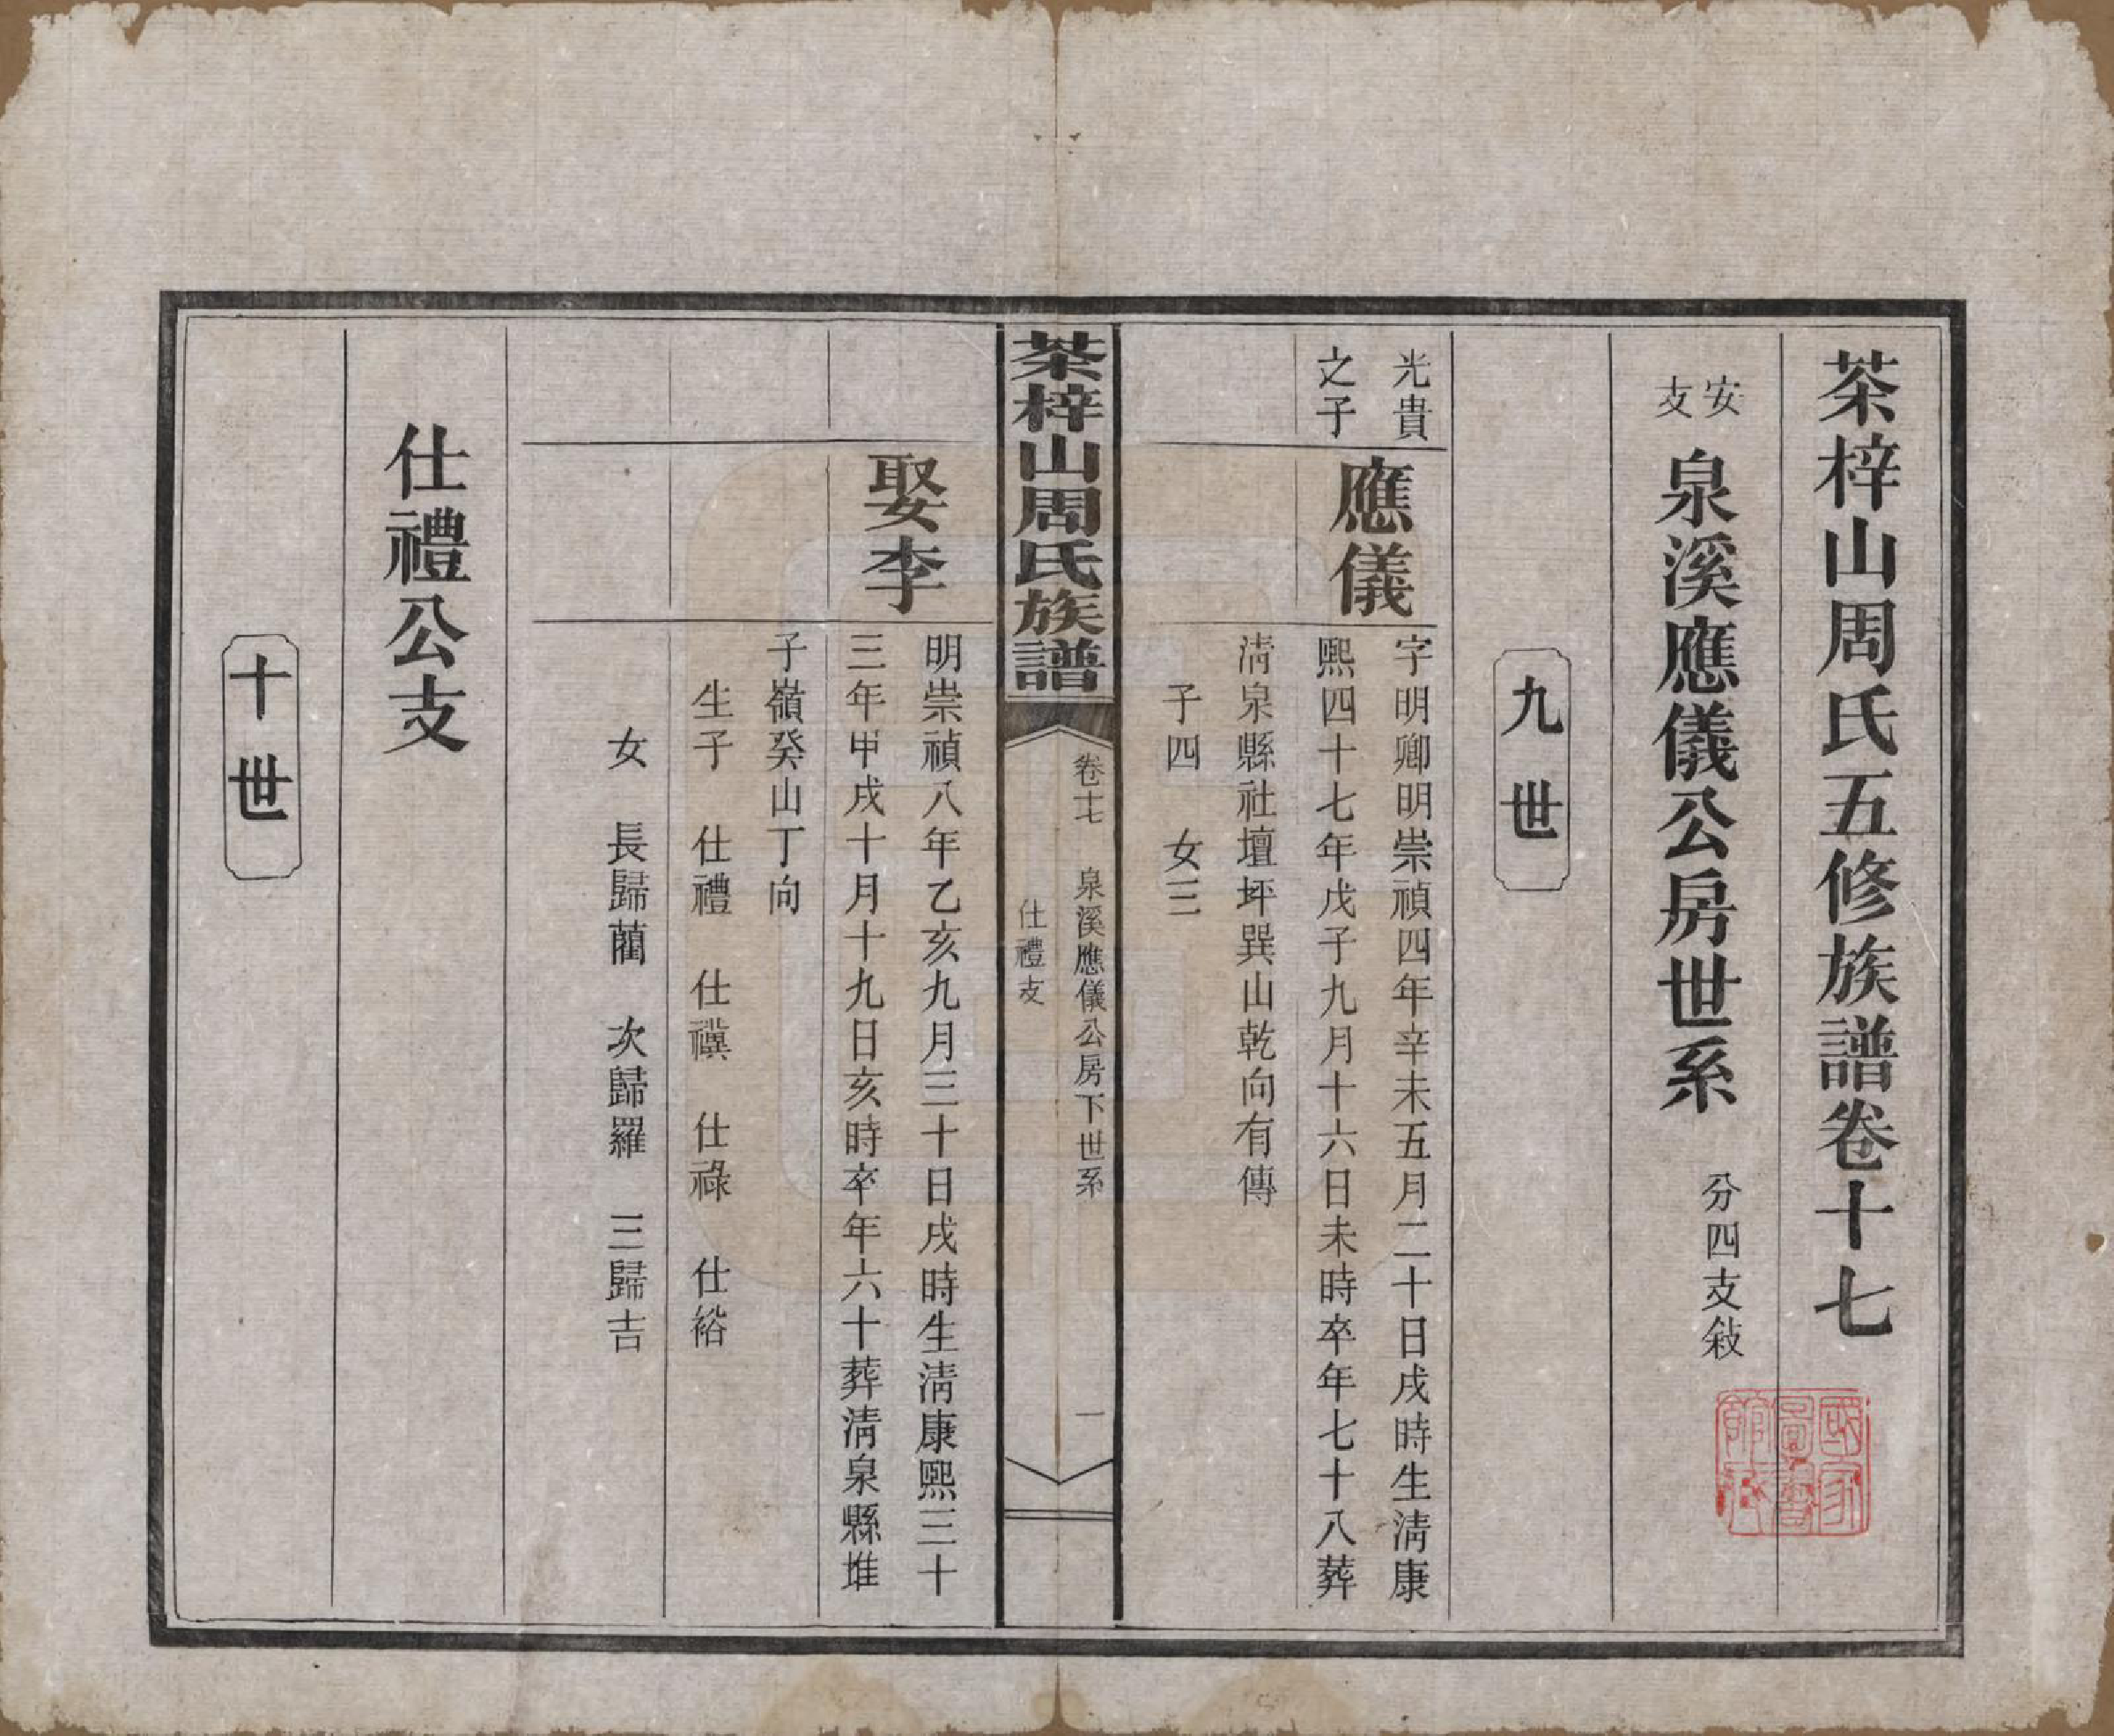 茶梓山周氏五修族譜卷十七
安支 泉溪應儀公房世系 分四支敍
九世
光貴之子
應儀
字明卿明崇禎四年辛未五月二十日戌時生淸康
熙四十七年戊子九月十六日未時卒年七十八葬
淸泉縣社壇坪巽山乾向有傳
子四 女三
茶梓山周氏族譜
卷十七 泉溪應儀公房下世系 一
仕禮支
娶李
明崇禎八年乙亥九月三十日戌時生淸康熙三十
三年甲戌十月十九日亥時卒年六十葬淸泉縣堆
子嶺癸山丁向
生子 仕禮 仕禩 仕祿 仕裕
女 長歸藺 次歸羅 三歸吉
仕禮公支
十世
國家圖書館藏